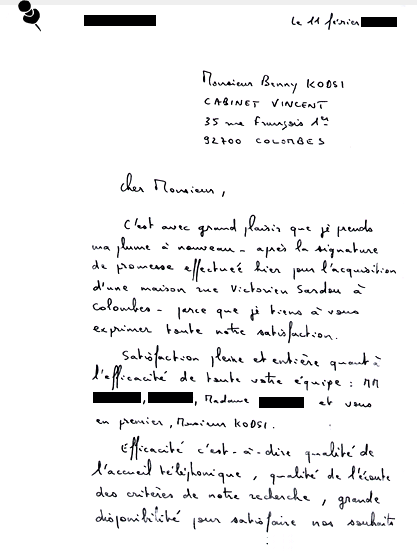 Le 11 février
Monsieur Benny KODSI
CABINET VINCENT
35 rue François 1er
92700 COLOMBES
Cher Monsieur,
C'est avec grand plaisir que je prends
ma plume à nouveau - après la signature
de promesse effectuée hier pour l'acquisition
d'une maison rue Victorien Sardou à
Colombes - parce que je tiens à vous
exprimer toute notre satisfaction.
Satisfaction pleine et entière quant à
l'efficacité de toute votre équipe : MM
, , Madame et vous
en premier, Monsieur KODSI.
Efficacité c'est-à-dire qualité de
l'accueil téléphonique, qualité de l'écoute
des critères de notre recherche, grande
disponibilité pour satisfaire nos souhaits